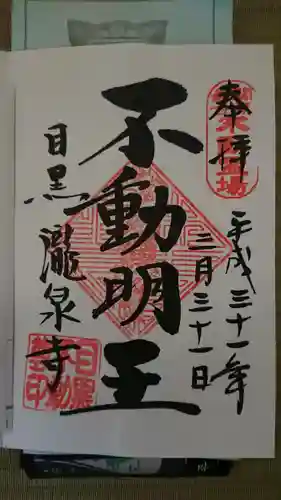 奉拝
平成三十一年
三月三十一日
不動明王
目黒 瀧泉寺